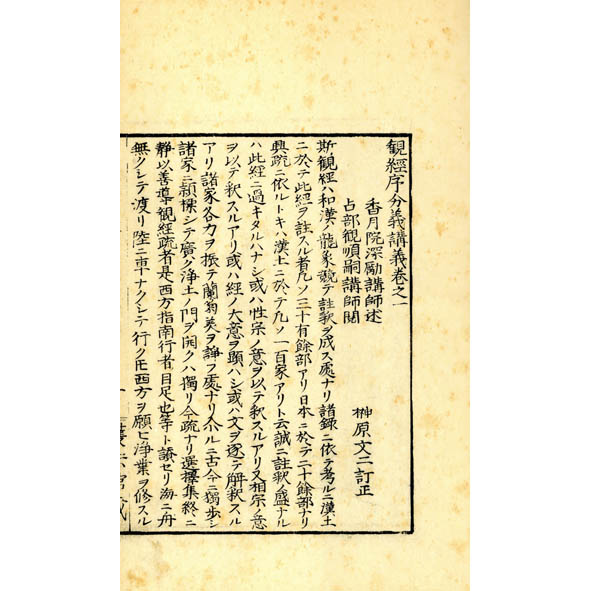 観經序分義講義卷之一
香月院深勵講師述
占部観順嗣講師閲
榊原文二訂正
斯観經ハ和漢ノ龍象競テ註釈ヲ成ス處ナリ諸錄ニ依テ考ルニ漢土
ニ於テ此經ヲ註スル者凡ソ三十有餘部アリ日本ニ於テ二十餘部ナリ
興疏ニ依ルトキハ漢土ニ於テ凡ソ一百家アリト云誠ニ註釈ノ盛ナル
ハ此經ニ過キタルハナシ或ハ性宗ノ意ヲ以テ釈スルアリ又相宗ノ意
ヲ以テ釈スルアリ或ハ経ノ大意ヲ顕ハシ或ハ文ヲ逐テ解釈スル
アリ諸家各力ヲ振テ蘭菊美ヲ諍フ處ナリ尒ルニ古今ニ獨歩シ
諸家ニ頴探シテ廣ク浄土ノ門ヲ開クハ獨リ今疏ナリ選擇集終ニ
靜以善導観經疏者是西方指南行者目足也等ト讃セリ海ニ舟
無クシテ渡リ陸ニ車ナクシテ行ク𪜈西方ヲ願ヒ浄業ヲ修スル